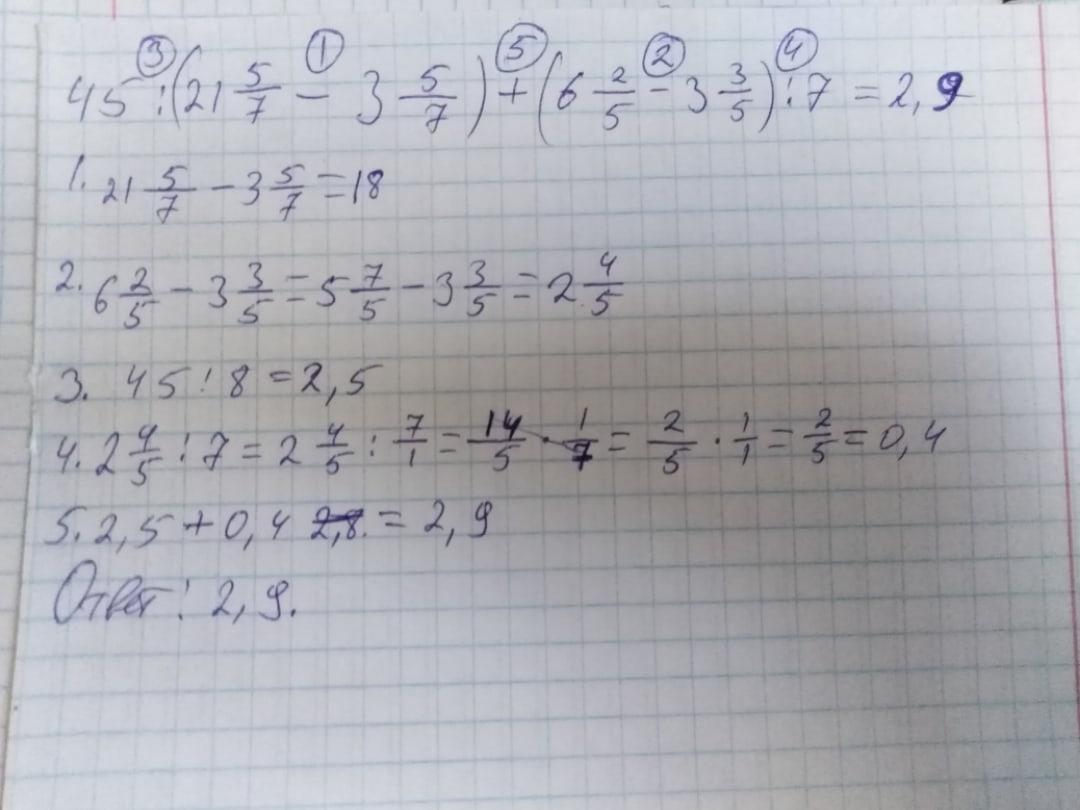 ③ ① ⑤ ② ④
45 : (21 5/7 − 3 5/7) + (6 2/5 − 3 3/5) : 7 = 2,9
1. 21 5/7 − 3 5/7 = 18
2. 6 2/5 − 3 3/5 = 5 7/5 − 3 3/5 = 2 4/5
3. 45 : 8 = 2,5
4. 2 4/5 : 7 = 2 4/5 : 7/1 = 14/5 · 1/7 = 2/5 · 1/1 = 2/5 = 0,4
5. 2,5 + 0,4 2,8. = 2,9
Ответ: 2,9.